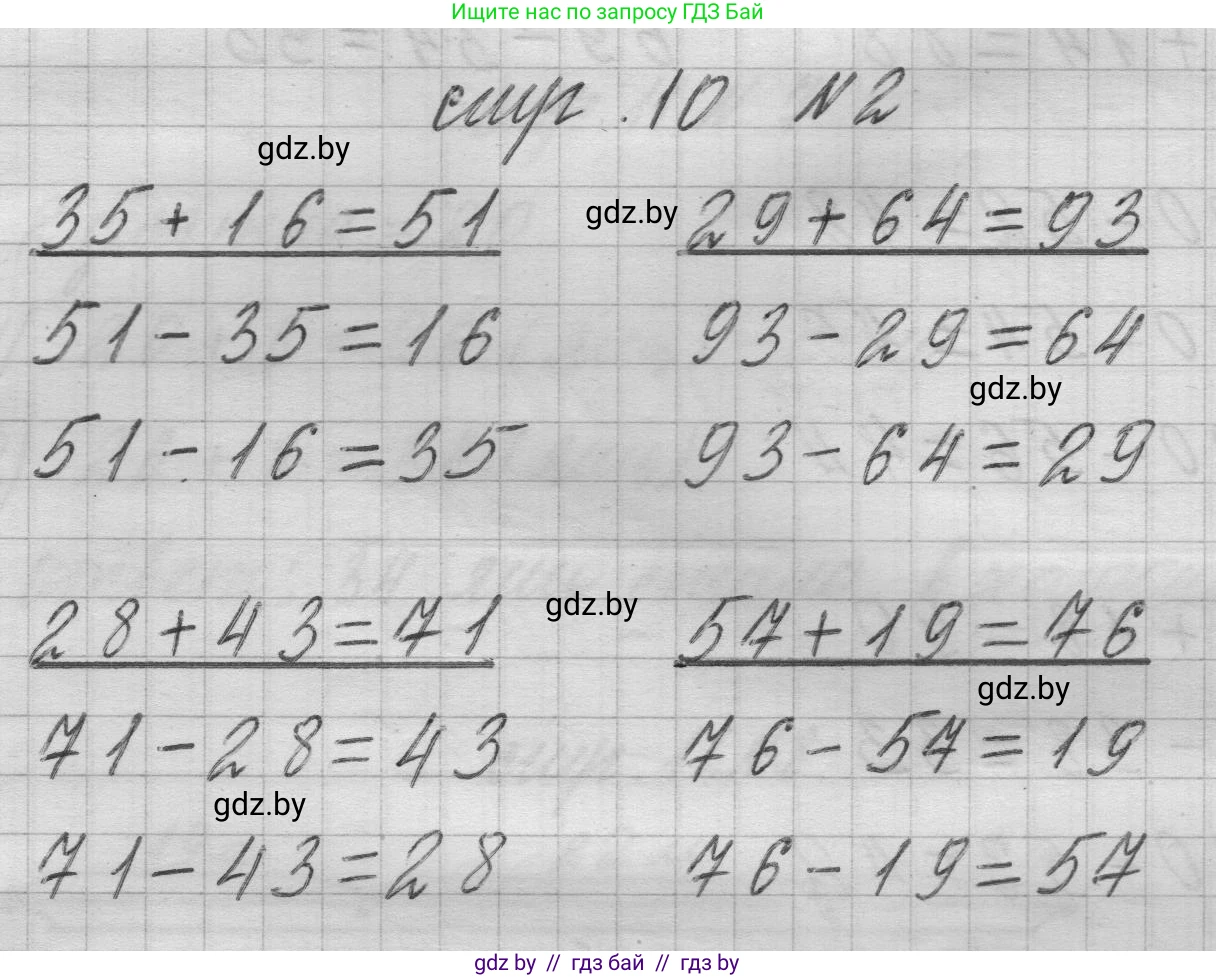 Ищите нас по запросу ГДЗ Бай
стр. 10 №2
gdz.by
35 + 16 = 51
gdz.by
29 + 64 = 93
51 - 35 = 16
93 - 29 = 64
gdz.by
51 - 16 = 35
93 - 64 = 29
gdz.by
28 + 43 = 71
57 + 19 = 76
gdz.by
71 - 28 = 43
76 - 57 = 19
gdz.by
71 - 43 = 28
76 - 19 = 57
gdz by // гдз бай // гдз by